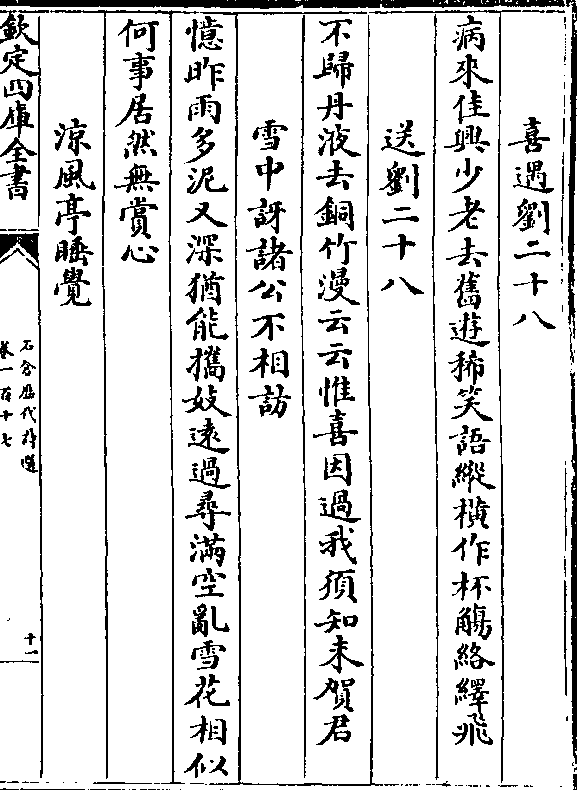 喜遇劉二十八
病來佳興少老去舊遊稀笑語縱橫作杯觴絡繹飛
送劉二十八
不歸丹液去銅竹漫云云惟喜因過我須知未賀君
雪中訝諸公不相訪
憶昨雨多泥又深猶能攜妓遠過尋滿空亂雪花相似
何事居然無賞心
涼風亭睡覺
欽定四庫全書
石倉歷代詩選
卷一百十七
十一